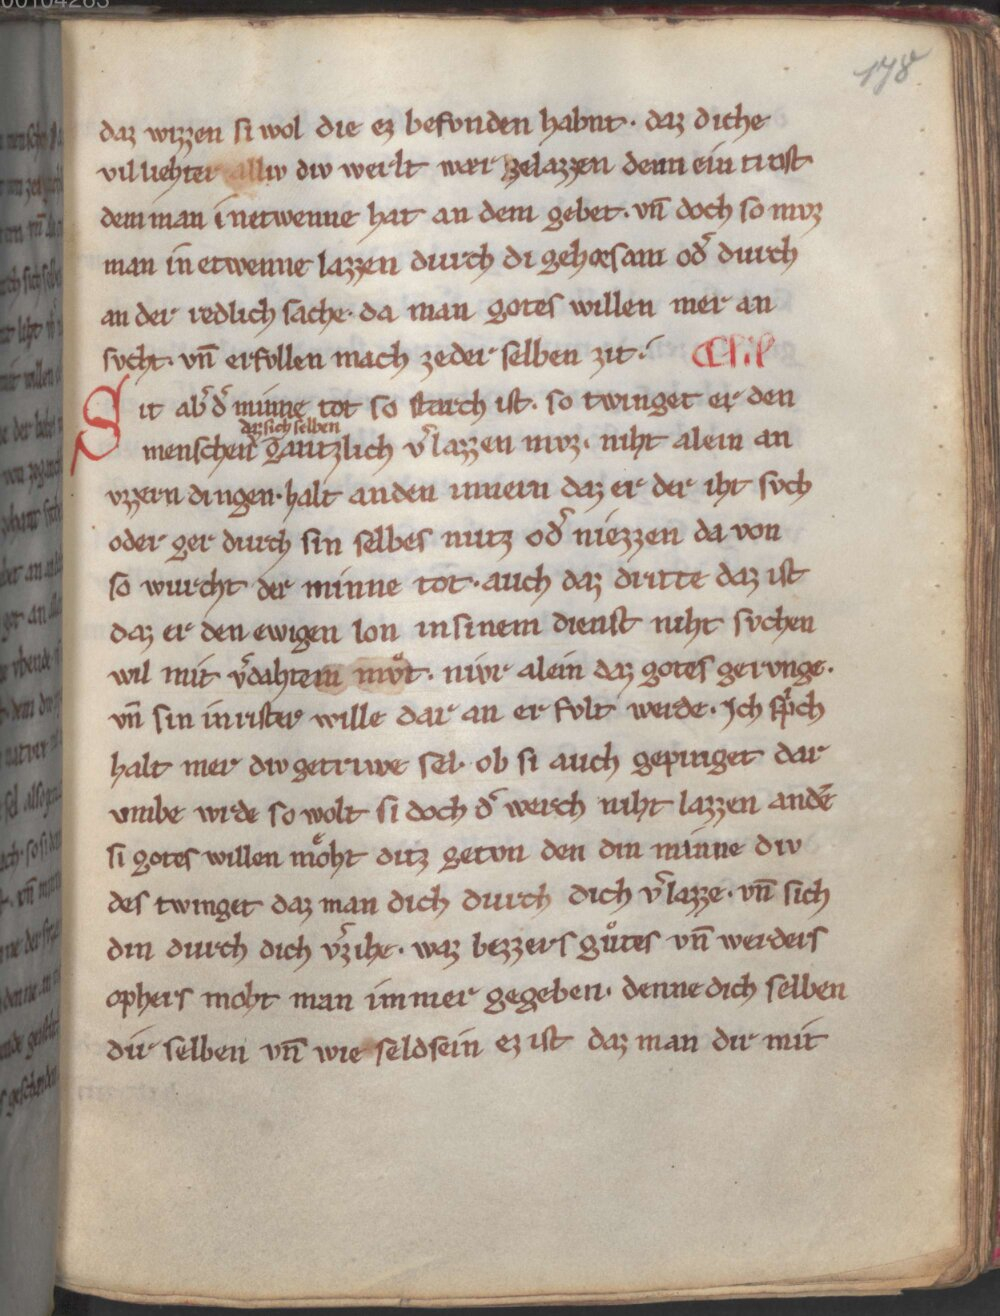 178
daz wizzen si wol die ez befvnden habnt · daz diche
vil liehter alliv div werlt wær zelazzen denn ein trost
dem man inetwenne hat an dem gebet · vn̄ doch so mvz
man in etwenne lazzen durch di gehorsam od̾ durch
an der redlich sache · da man gotes willen mer an
svcht · vn̄ erfvllen mach zeder selben zit ·
Sit ab̾ d̾ minne tot so starch ist · so twinget er den
daz sich selben
menschen gantzlich v̾lazzen mvz · niht alein an
vzzern dingen · halt anden innern daz er der iht svch
oder ger durch sin selbes nutz od̾ niezzen da von
so wurcht der minne tot · auch daz dritte daz ist
daz er den ewigen lon in sinem dienst niht svchen
wil mit v̾dahtem mvͦt · nivr alein daz gotes gervnge ·
vn̄ sin inrister wille dar an er fvlt werde · Ich sp̾ch
halt mer div getriwe sel · ob si auch gepinget dar
vmbe wrde so wolt si doch d̾ werch niht lazzen andē
si gotes willen moͤht ditz getvn den din minne div
des twinget daz man dich durch dich v̾lazze · vn̄ sich
din durch dich v̾zihe · waz bezzers gůtes vn̄ werders
ophers moht man immer gegeben · denne dich selben
dir selben vn̄ wie seldsein ez ist daz man dir mit